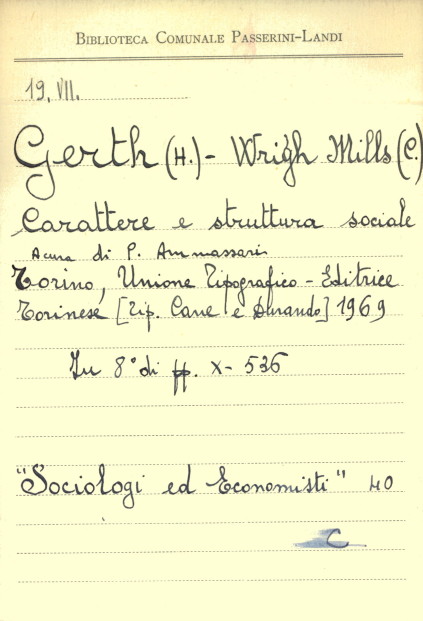 BIBLIOTECA COMUNALE PASSERINI-LANDI
19. VII.
Gerth (H.) - Wrigh Mills (C.)
Carattere e struttura sociale
A cura di P. Ammassari
Torino, Unione Tipografico - Editrice
Torinese [Tip. Cane e Durando] 1969
In 8° di pp. X - 536
"Sociologi ed Economisti" 40
C